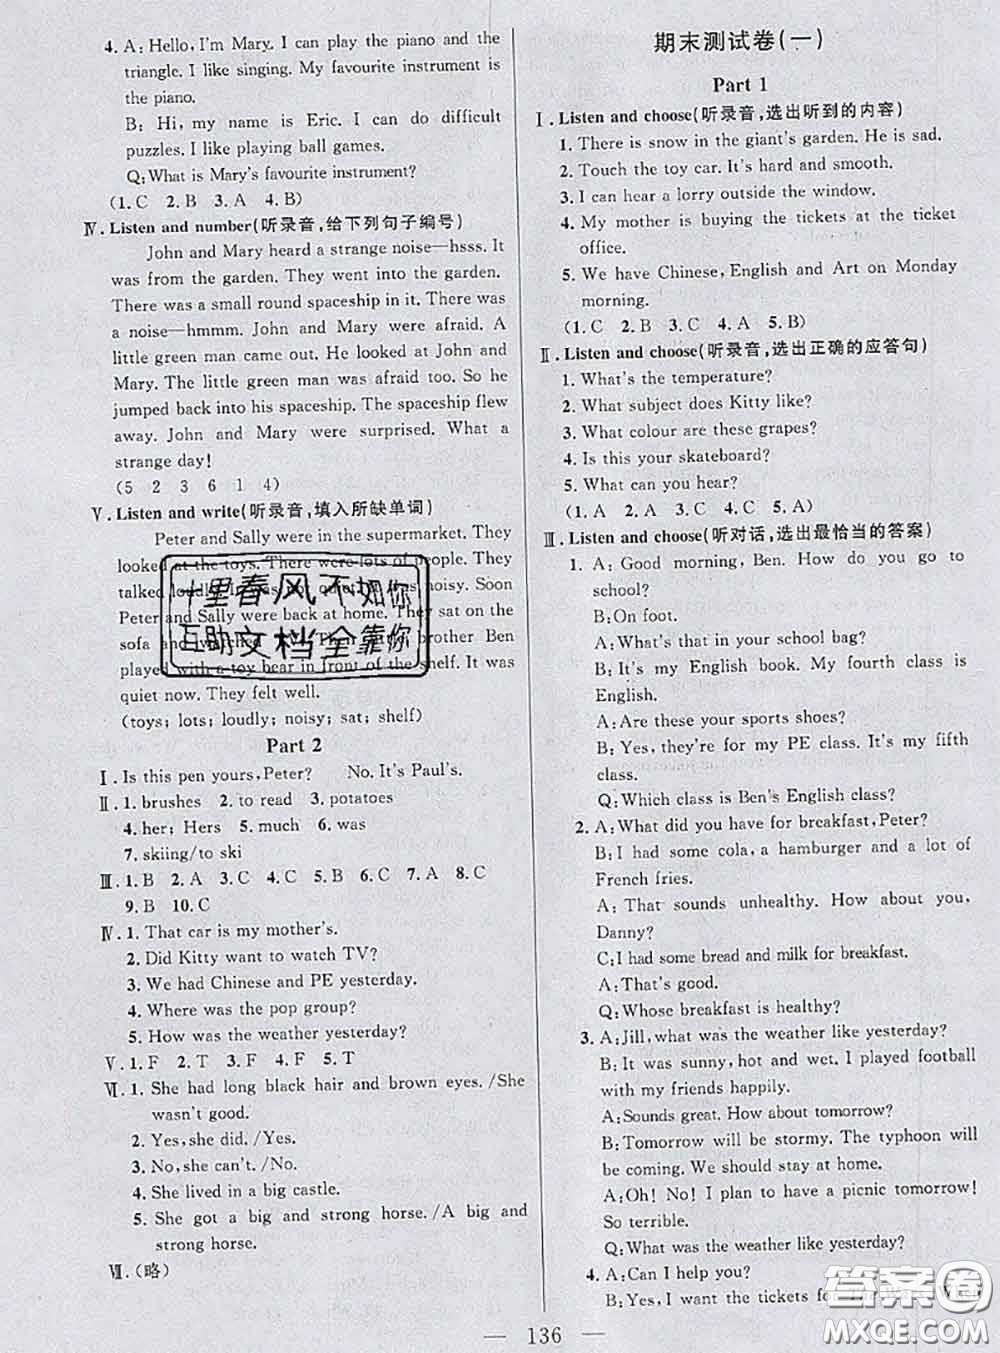 4. A: Hello, I'm Mary. I can play the piano and the
triangle. I like singing. My favourite instrument is
the piano.
B: Hi, my name is Eric. I can do difficult
puzzles. I like playing ball games.
Q: What is Mary's favourite instrument?
(1. C 2. B 3. A 4. B)
Ⅳ. Listen and number(听录音,给下列句子编号)
John and Mary heard a strange noise—hsss. It
was from the garden. They went into the garden.
There was a small round spaceship in it. There was
a noise—hmmm. John and Mary were afraid. A
little green man came out. He looked at John and
Mary. The little green man was afraid too. So he
jumped back into his spaceship. The spaceship flew
away. John and Mary were surprised. What a
strange day!
(5 2 3 6 1 4)
Ⅴ. Listen and write(听录音,填入所缺单词)
Peter and Sally were in the supermarket. They
looked at the toys. There were lots of people. They
talked loudly. It was not quiet. It was noisy. Soon
Peter and Sally were back at home. They sat on the
sofa and watched Their brother Ben
played with a toy bear in front of the shelf. It was
quiet now. They felt well.
(toys; lots; loudly; noisy; sat; shelf)
十里春风不如你
互助文档全靠你
Part 2
Ⅰ. Is this pen yours, Peter? No. It's Paul's.
Ⅱ. 1. brushes 2. to read 3. potatoes
4. her; Hers 5. much 6. was
7. skiing/to ski
Ⅲ. 1. B 2. A 3. C 4. C 5. C 6. C 7. A 8. C
9. B 10. C
Ⅳ. 1. That car is my mother's.
2. Did Kitty want to watch TV?
3. We had Chinese and PE yesterday.
4. Where was the pop group?
5. How was the weather yesterday?
Ⅴ. 1. F 2. T 3. F 4. F 5. T
Ⅵ. 1. She had long black hair and brown eyes. /She
wasn't good.
2. Yes, she did. /Yes.
3. No, she can't. /No.
4. She lived in a big castle.
5. She got a big and strong horse. /A big and
strong horse.
Ⅶ. (略)
期末测试卷(一)
Part 1
Ⅰ. Listen and choose(听录音,选出听到的内容)
1. There is snow in the giant's garden. He is sad.
2. Touch the toy car. It's hard and smooth.
3. I can hear a lorry outside the window.
4. My mother is buying the tickets at the ticket
office.
5. We have Chinese, English and Art on Monday
morning.
(1. C 2. B 3. C 4. A 5. B)
Ⅱ. Listen and choose(听录音,选出正确的应答句)
1. What's the temperature?
2. What subject does Kitty like?
3. What colour are these grapes?
4. Is this your skateboard?
5. What can you hear?
(1. A 2. A 3. C 4. C 5. A)
Ⅲ. Listen and choose(听对话,选出最恰当的答案)
1. A: Good morning, Ben. How do you go to
school?
B: On foot.
A: What's that in your school bag?
B: It's my English book. My fourth class is
English.
A: Are these your sports shoes?
B: Yes, they're for my PE class. It's my fifth
class.
Q: Which class is Ben's English class?
2. A: What did you have for breakfast, Peter?
B: I had some cola, a hamburger and a lot of
French fries.
A: That sounds unhealthy. How about you,
Danny?
C: I had some bread and milk for breakfast.
A: That's good.
Q: Whose breakfast is healthy?
3. A: Jill, what was the weather like yesterday?
B: It was sunny, hot and wet. I played football
with my friends happily.
A: Sounds great. How about tomorrow?
B: Tomorrow will be stormy. The typhoon will
be coming. We should stay at home.
A: Oh! No! I plan to have a picnic tomorrow!
So terrible.
Q: What was the weather like yesterday?
4. A: Can I help you?
B: Yes, I want the tickets for
答案圈
MXQE.COM
— 136 —